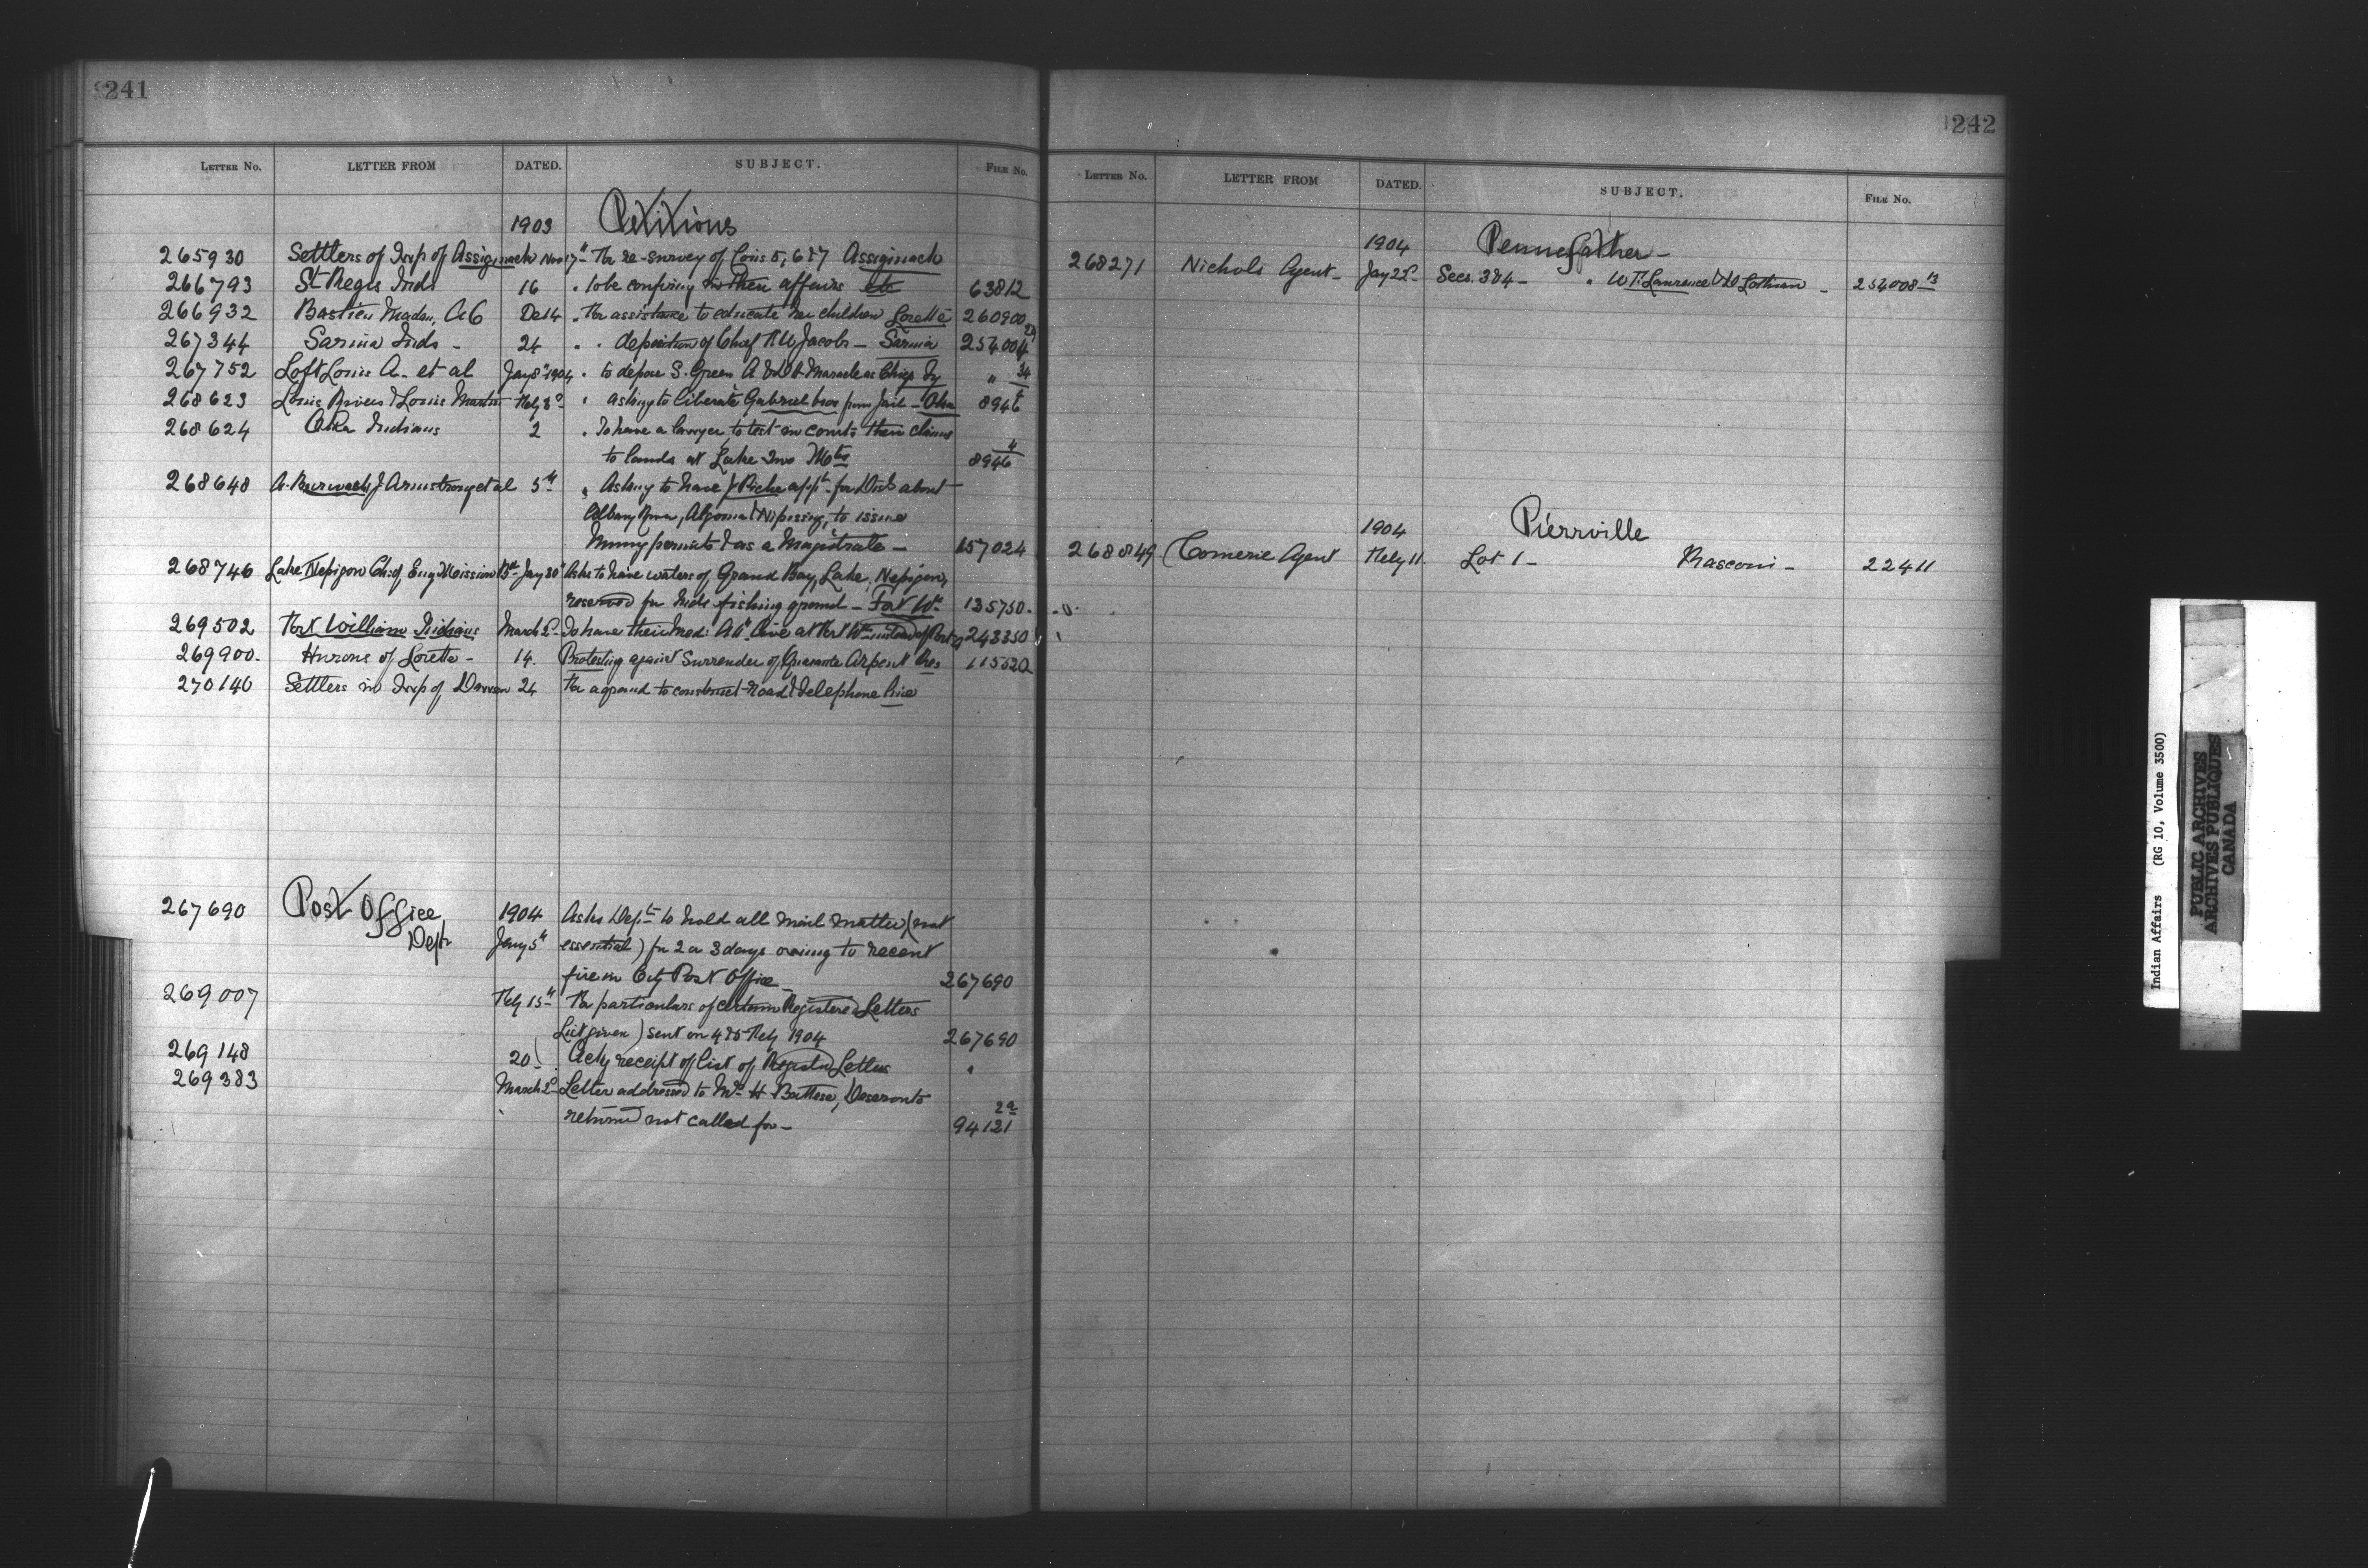 241
LETTER No. LETTER FROM DATED. SUBJECT. FILE No.
1903 Petitions
265930 Settlers of Twp of Assiginack Nov 17th For re-survey of Cons 5, 6 & 7 Assiginack
266793 St Regis Inds 16 " to be confining in their affairs etc 63812
266932 Bastien Madam, A C De 14 " For assistance to educate her children Lorette 260900
267344 Sarnia Inds - 24 " " deposition of Chief A W Jacobs - Sarnia 254004 29
267752 Loft Louis A. et al Jany 8th 1904 " to depose S. Green A & Maracle as Chiefs Ty " 34
268623 Louis Rivers & Louis Martin Feby 3d " asking to liberate Gabriel from Jail - Oka 8946 4
268624 Oka Indians 2 " To have a lawyer to test in courts their claims
to lands at Lake Two Mtns 8946 4
268648 A. J Armstrong et al 5th " Asking to have J Riche appt for Dist about
Albany River, Algoma & Nipissing, to issue
permits & as a Magistrate - 157024
268746 Lake Nepigon Ch: of Eng Mission Jany 30th Asks to have waters of Grand Bay, Lake, Nepigon,
reserved for Inds fishing ground - Fort Wm 135750.
269502 Fort William Indians March 2d To have their Med: Att live at Fort Wm instead of Port A 243350
269900. Hurons of Lorette - 14. Protesting against Surrender of Quarante Arpent Res 115520
270146 Settlers in Twp of 24 For a ground to construct road & telephone line
267690 Post Office 1904 Asks Dept to hold all mail matter (not
Dept Jany 5th essential) for 2 or 3 days owing to recent
fire in City Post Office 267690
269007 Feby 15th For particulars of certain Registered Letters
(List given) sent on 4 & 5 Feby 1904 267690
269148 20 Ackg receipt of list of Registd Letters "
269383 March 2d Letter addressed to Mrs H Battese, Deseronto
returned not called for - 94121 2a
242
LETTER No. LETTER FROM DATED. SUBJECT. FILE No.
1904 Pennefather -
268271 Nichols Agent - Jany 22d Secs. 3 & 4 - " W. F. Lawrence & D Lothian - 254008 13
1904 Pierrville
268849 Comerie Agent Feby 11. Lot 1 - Masconi - 22411
Indian Affairs (RG 10, Volume 3500)
PUBLIC ARCHIVES
ARCHIVES PUBLIQUES
CANADA